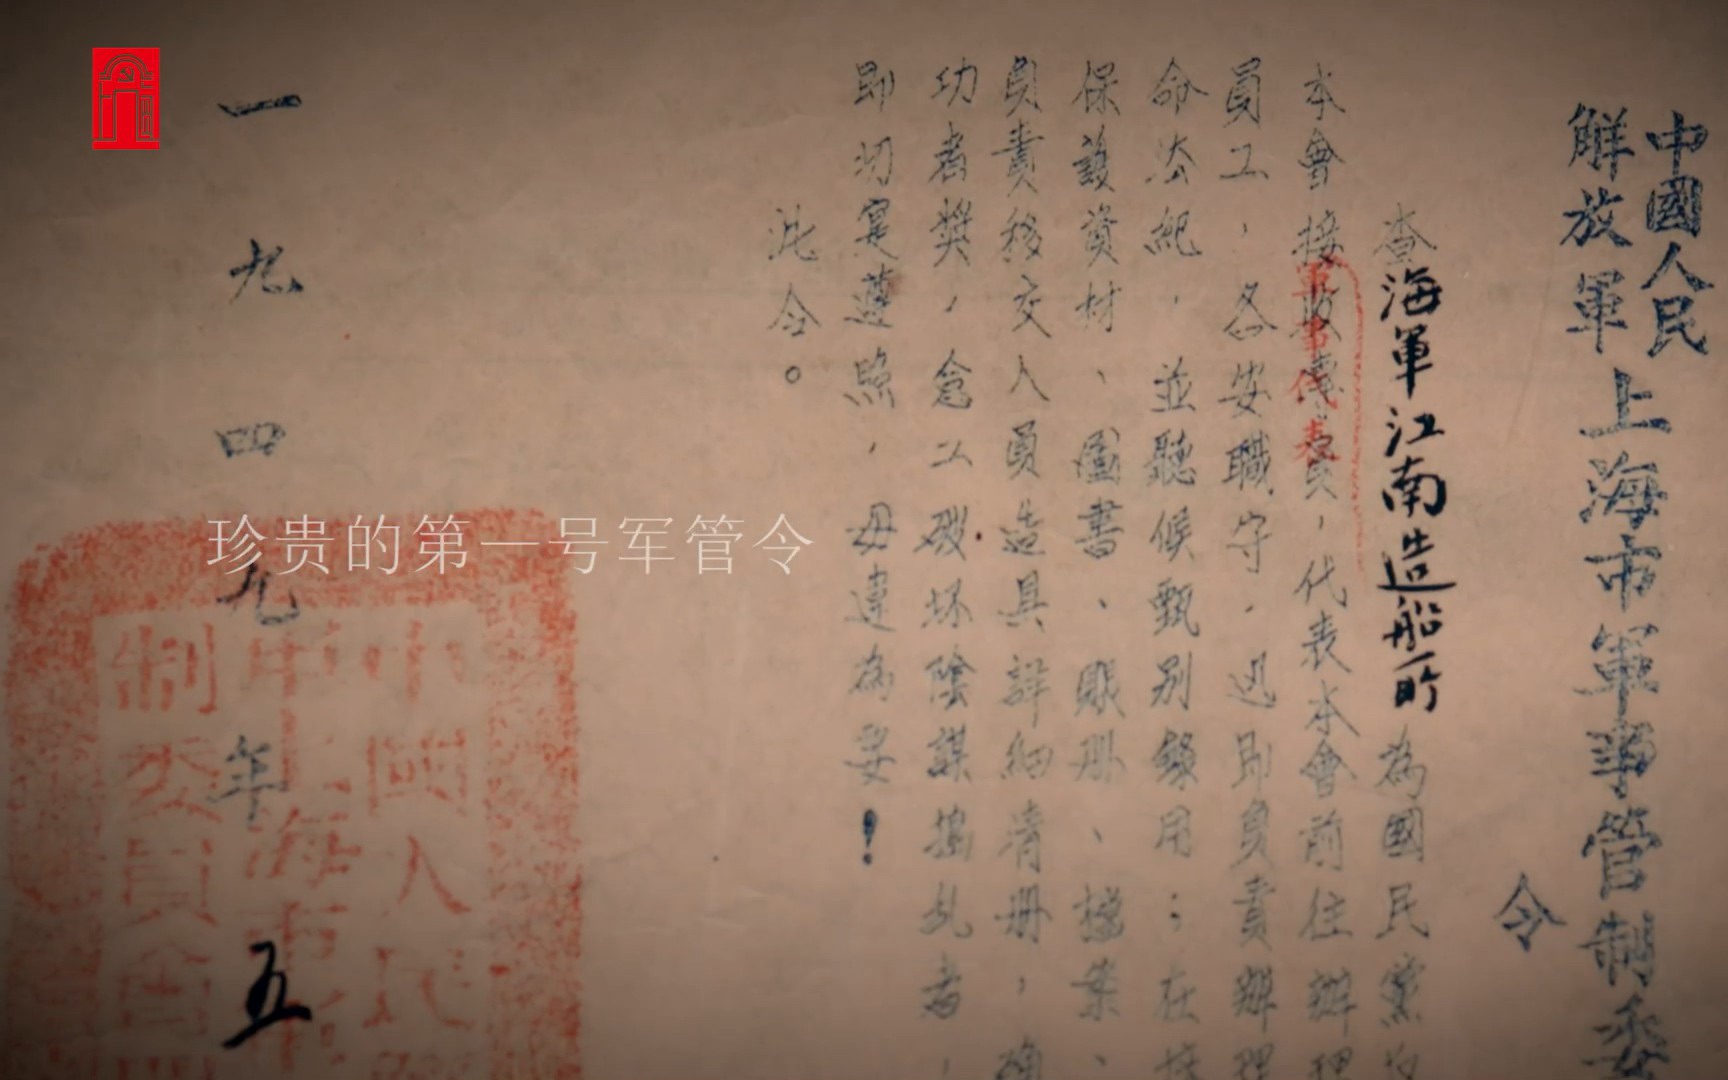 中國人民
解放軍
上海市軍事管制委
令
查海軍江南造船所為國民黨
本會接收專員，代表本會前往辦理
軍事代表
員工，各安職守．迅即負責辦理
命法紀，並聽候甄別錄用；在接
保護資材、圖書、賬册、檔案、
負責移交人員造具詳細清册，確
功者獎，怠工破坏陰謀搗乱者，
即切寔遵照，毋違為要！
此令。
一九四九年五
中國人民解
軍上海市軍
制委員會
珍贵的第一号军管令